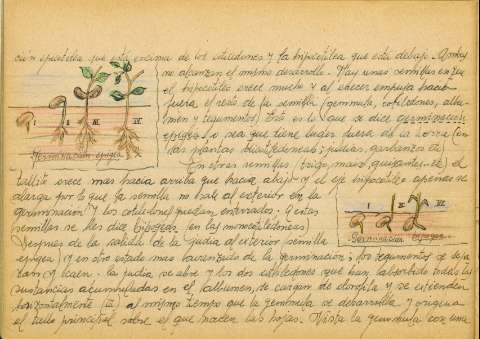 ción epicotilea que está encima de los cotiledones y la hipocotilea que está debajo. Ambas
no alcanzan el mismo desarrollo. Hay unas semillas en que
el hipocotileo crece mucho y al crecer empuja hacia
fuera el resto de la semilla (gemmula, cotiledones, albu-
men y tegumentos). Esto es lo que se dice germinación
epigea, o sea que tiene lugar fuera de la tierra (en
las plantas dicotiledoneas: judias, garbanzo &)
En otras semillas (trigo, maiz, guisantes &) el
tallito crece mas hacia arriba que hacia abajo y el eje hipocotileo apenas se
alarga por lo que la semilla no sale al exterior en la
germinación y los cotiledones quedan enterrados. A estas
semillas se les dice hipogeas (en las monocotiledoneas)
Despues de la salida de la judia al exterior semilla
epigea (y en otro estado mas avanzado de la germinación) los tegumentos se dejan
y caen. La judia se abre y los dos cotiledones que han absorbido todas las
sustancias acumuladas en el albumen, se cargan de clorofila y se extienden
horizontalmente al mismo tiempo que la gemmula se desarrolla y origina
el tallo principal sobre el que nacen las hojas. Hasta la gemmula con una
I II III IV
Germinación epigea
I II III
Germinación hipogea